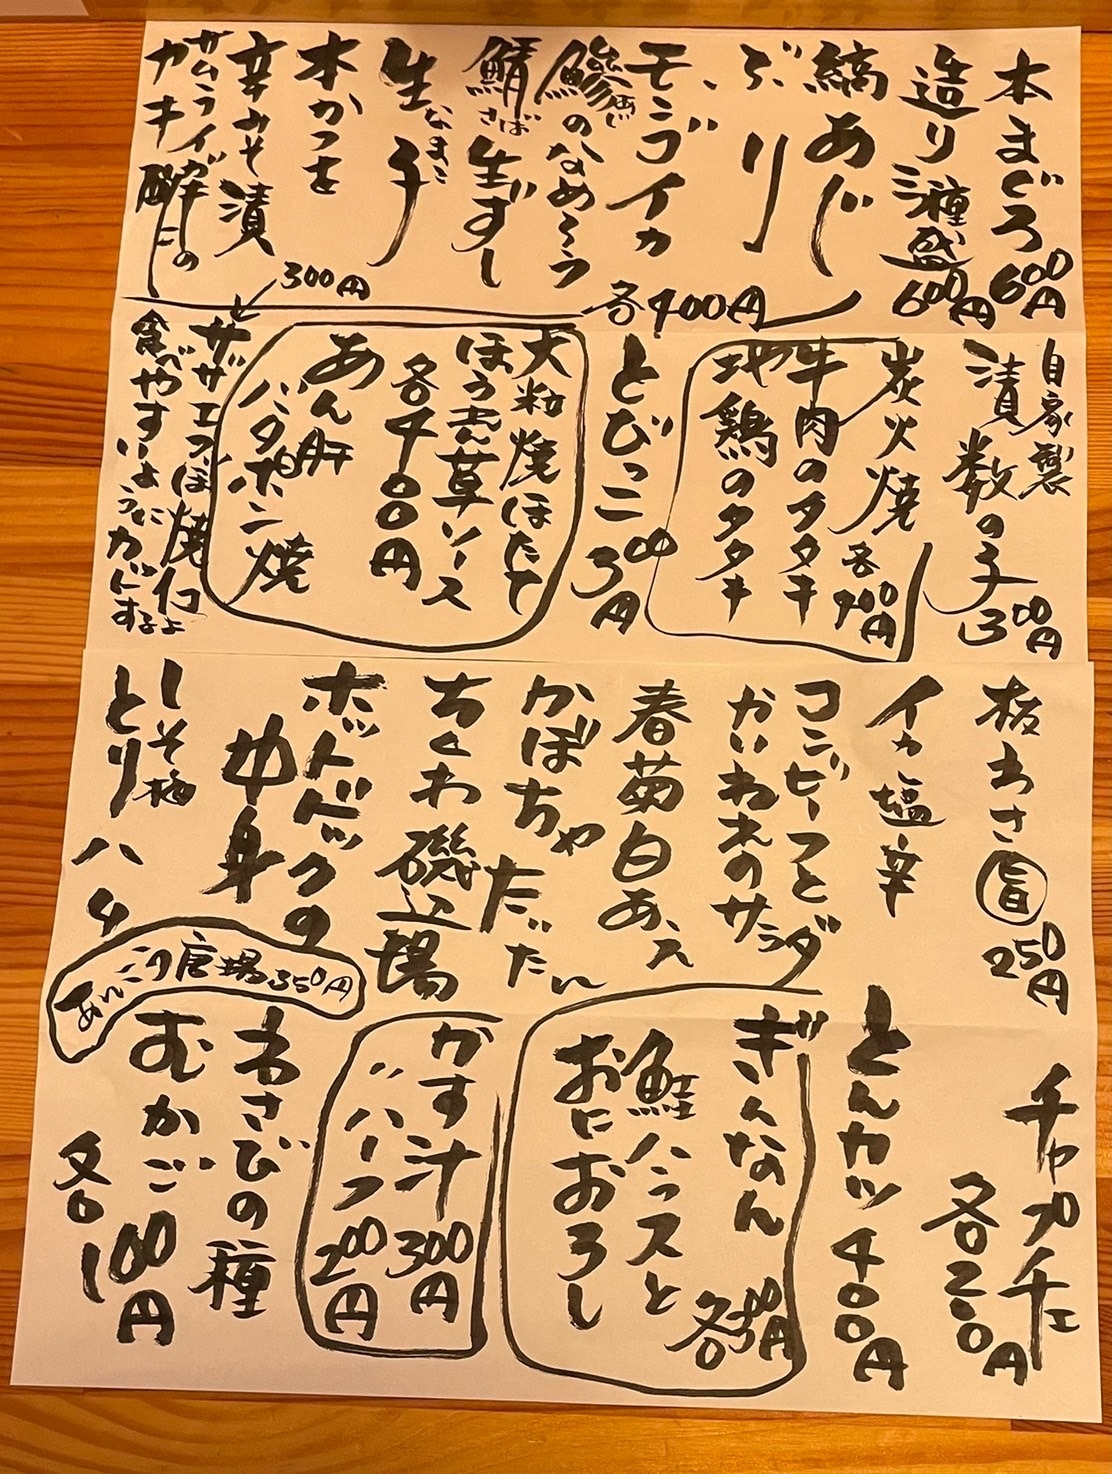 本まぐろ 600円
造り三種盛 600円
縞あじ
ぶり
モンゴイカ
鯵のなめろう
あじ
鯖生ずし
さば
生子
なまこ
本かつを
辛みそ漬
サムライガキの
カキ酢
各400円
300円
自家製
漬数の子 300円
炭火焼 各400円
牛肉のタタキ
地鶏のタタキ
とびっこ 300円
大粒焼ほたて
ほうれん草ソース
各400円
あん肝
バタポン焼
サザエつぼ焼
食べやすいようにカットするよ
板わさ 旨 250円
イカ塩辛
コンビーフと
かいわれのサラダ
春菊白あえ
かぼちゃ
だいたん
ちくわ磯辺揚
ホットドッグの
中身
しそ梅
とりハム
あんこう唐揚350円
チャプチェ
各200円
とんカツ 400円
ぎんなん
鮭ハラスと
おにおろし
各300円
かす汁 300円
〃 ハーフ 200円
わさびの種
むかご
各100円